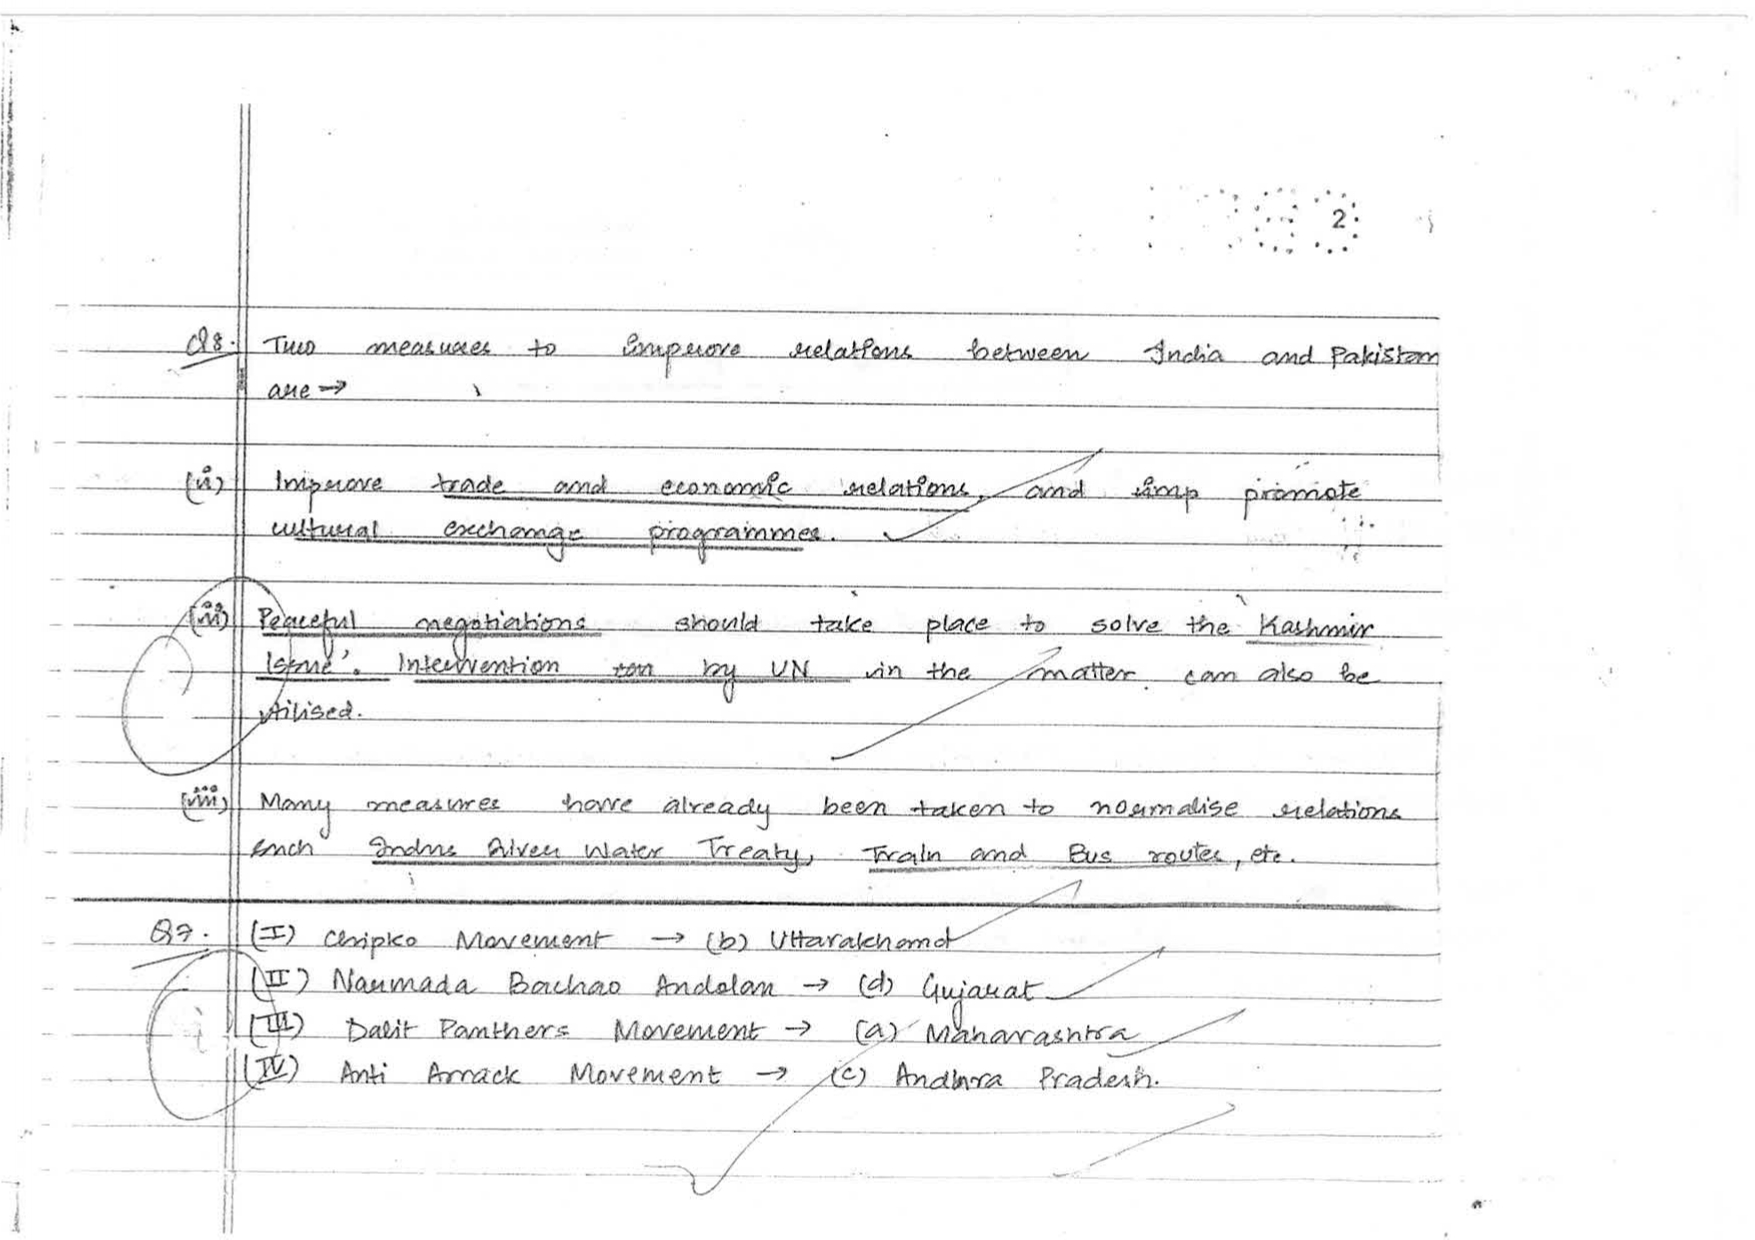 2
Q8. Two measures to improve relations between India and Pakistan
are →
(i) Improve trade and economic relations, and imp promote
cultural exchange programmes.
(ii) Peaceful negotiations should take place to solve the 'Kashmir
Issue'. Intervention can by UN in the matter can also be
utilised.
(iii) Many measures have already been taken to normalise relations
such Indus River Water Treaty, Train and Bus routes, etc.
Q7. (I) Chipko Movement → (b) Uttarakhand
(II) Narmada Bachao Andolan → (d) Gujarat
(III) Dalit Panthers Movement → (a) Maharashtra
(IV) Anti Arrack Movement → (c) Andhra Pradesh.